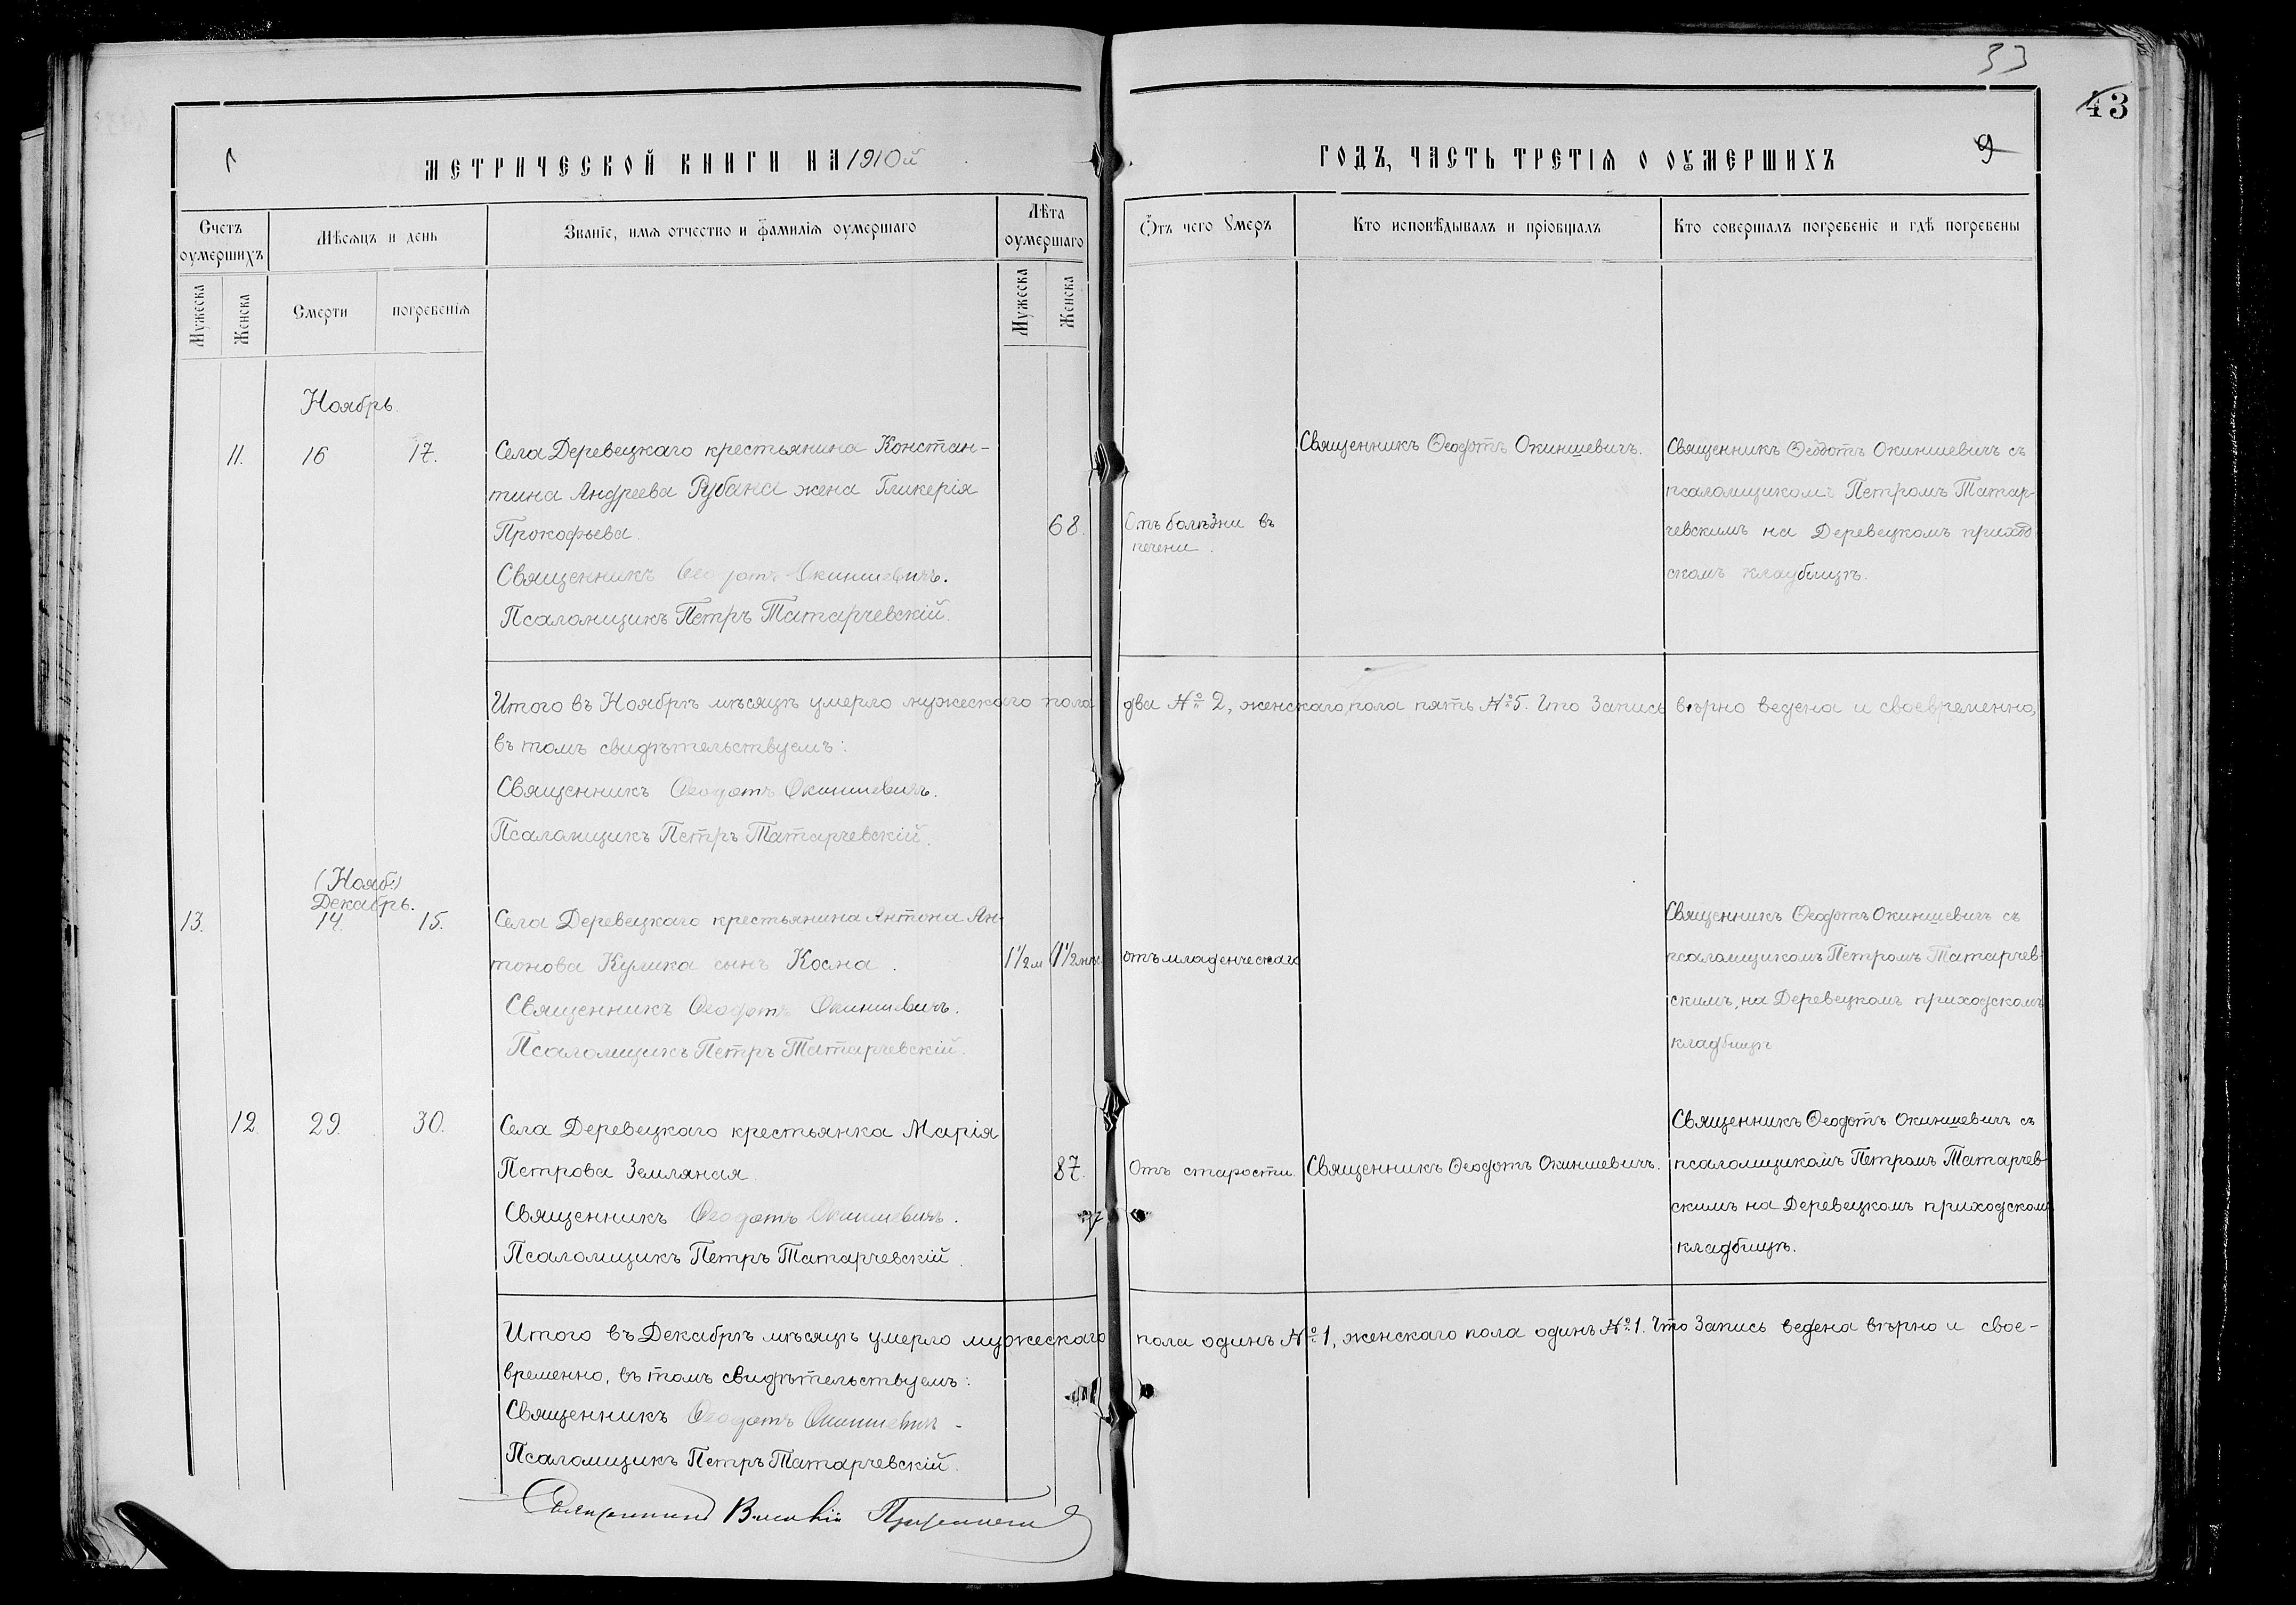 33
43
9
МЕТРИЧЕСКОЙ КНИГИ НА 1910й
ГОДЪ, ЧАСТЬ ТРЕТІЯ О ОУМЕРШИХЪ
Счетъ оумершихъ
Мѣсяцъ и день
Званіе, имя отчество и фамилія оумершаго
Лѣта оумершаго
Ѿтъ чего Умеръ
Кто исповѣдывалъ и пріобщалъ
Кто совершалъ погребеніе и гдѣ погребены
Мужеска
Женска
Смерти
погребенія
Мужеска
Женска
Ноябрь.
11. 16 17.
Села Деревецкаго крестьянина Констан-
тина Андреева Рубана жена Гликерія
Прокофьева.
Священникъ Ѳеодотъ Окиншевичъ.
Псаломщикъ Петръ Татарчевскій.
68.
Отъ болѣзни въ
печени.
Священникъ Ѳеодотъ Окиншевичъ.
Священникъ Ѳеодотъ Окиншевичъ съ
псаломщикомъ Петромъ Татар-
чевскимъ на Деревецкомъ приход
скомъ кладбищѣ.
Итого въ Ноябрѣ мѣсяцѣ умерло мужескаго пола два № 2, женскаго пола пять № 5. Что Запись вѣрно ведена и своевременно,
въ томъ свидѣтельствуемъ:
Священникъ Ѳеодотъ Окиншевичъ.
Псаломщикъ Петръ Татарчевскій.
(Нояб.)
Декабрь.
13. 14. 15.
Села Деревецкаго крестьянина Антона Ан-
тонова Кулика сынъ Косма.
Священникъ Ѳеодотъ Окиншевичъ.
Псаломщикъ Петръ Татарчевскій.
1½м (1½
отъ младенческаго
Священникъ Ѳеодотъ Окиншевичъ съ
псаломщикомъ Петромъ Татарчев-
скимъ, на Деревецкомъ приходскомъ
кладбищѣ
12. 29. 30.
Села Деревецкаго крестьянка Марія
Петрова Земляная.
Священникъ Ѳеодотъ Окиншевичъ.
Псаломщикъ Петръ Татарчевскій.
87.
Отъ старости.
Священникъ Ѳеодотъ Окиншевичъ.
Священникъ Ѳеодотъ Окиншевичъ съ
псаломщикомъ Петромъ Татарчев-
скимъ на Деревецкомъ приходскомъ
кладбищѣ.
Итого въ Декабрѣ мѣсяцѣ умерло мужескаго пола одинъ № 1, женскаго пола одинъ № 1. Что Запись ведена вѣрно и свое-
временно, въ томъ свидѣтельствуемъ:
Священникъ Ѳеодотъ Окиншевичъ.
Псаломщикъ Петръ Татарчевскій.
Священникъ